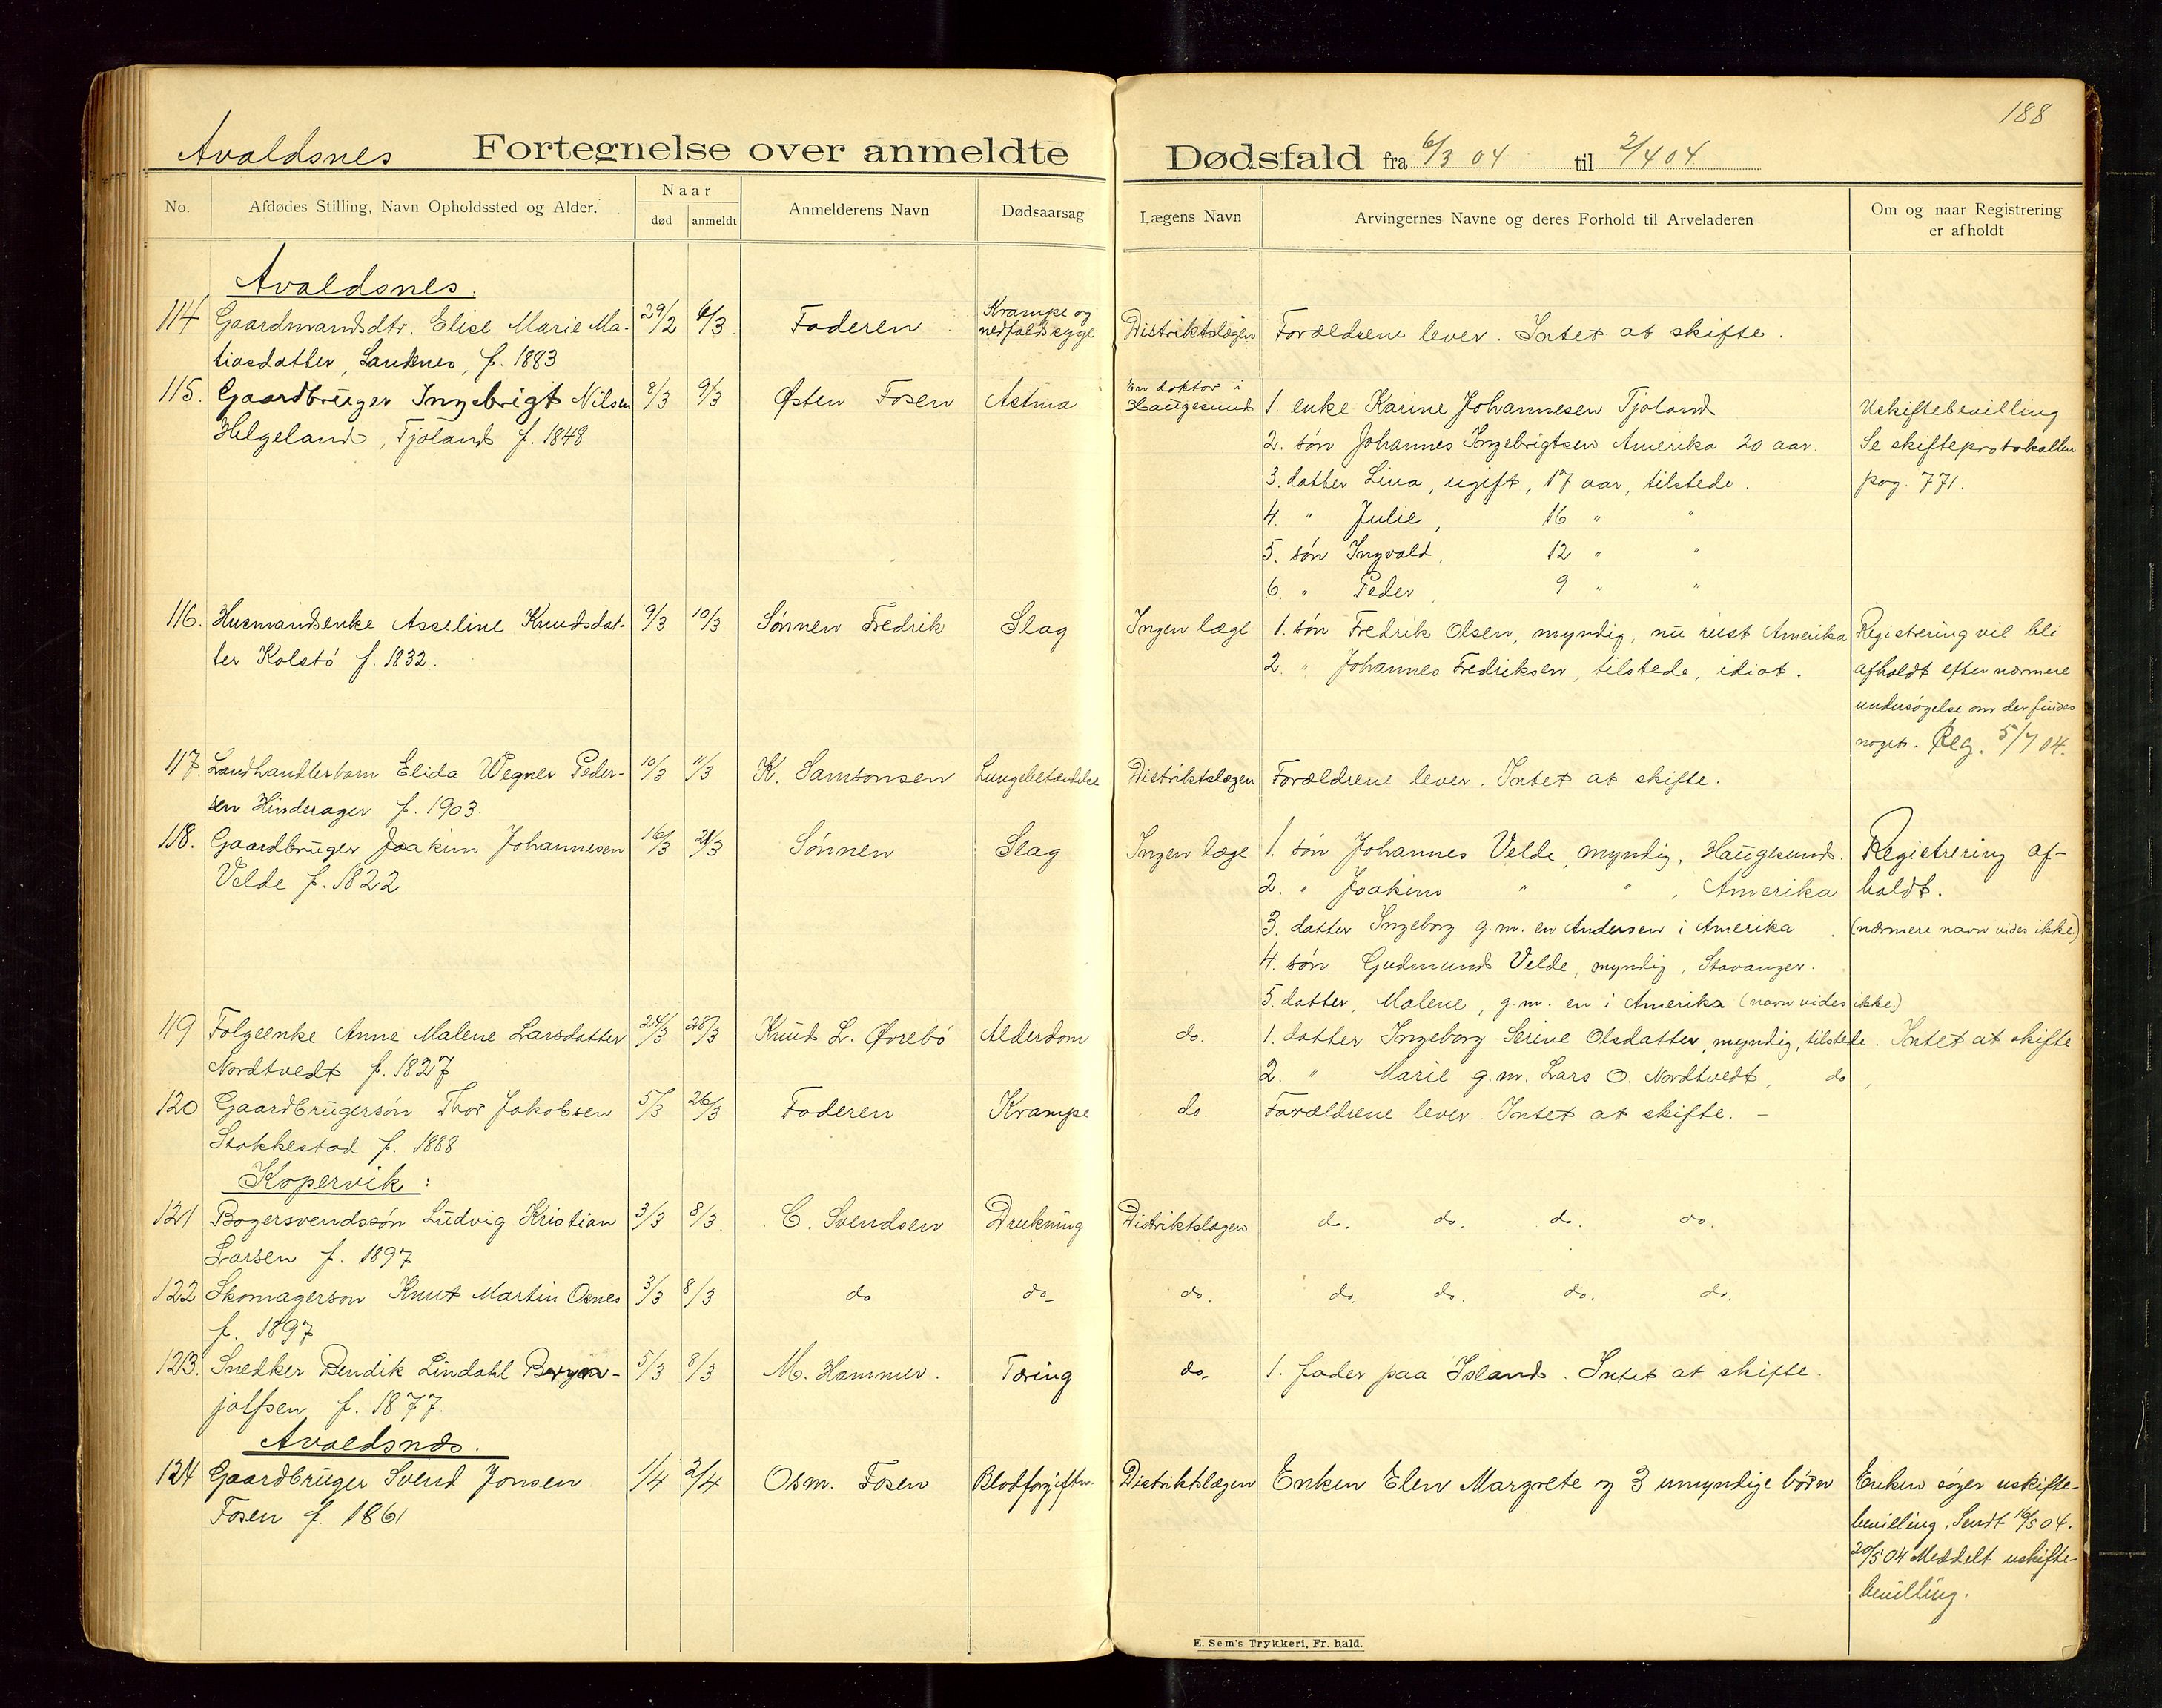 188
Avaldsnes Fortegnelse over anmeldte Dødsfald fra 6/3 04 til 2/4 04
No. Afdødes Stilling, Navn Opholdssted og Alder. Naar død anmeldt Anmelderens Navn Dødsaarsag Lægens Navn Arvingernes Navne og deres Forhold til Arveladeren Om og naar Registrering er afholdt
Avaldsnes.
114 Gaardmandsdtr. Elise Marie Ma- 29/2 6/3 Faderen Krampe og nedfaldssyge Distriktslægen Forældrene lever. Intet at skifte.
tiasdatter, Sandnes, f. 1883
115. Gaardbruger Ingebrigt Nilsen 8/3 9/3 Østen Fosen Astma En doktor i Haugesund 1. enke Karine Johannesen Tjoland Uskiftebevilling
Helgeland, Tjoland f. 1848 2. søn Johannes Ingebrigtsen Amerika 20 aar. Se skifteprotokollen
3. datter Lina, ugift, 17 aar, tilstede. pag. 771.
4. " Julie, 16 " "
5. søn Ingvald, 12 " "
6. " Peder, 9 " "
116. Husmandsenke Asseline Knudsdat- 9/3 10/3 Sønnen Fredrik Slag Ingen læge 1. søn Fredrik Olsen, myndig, nu reist Amerika Registrering vil bli
ter Kolstø f. 1832. 2. " Johannes Fredriksen, tilstede, idiot. afholdt efter nærmere
undersøgelse om der findes
noget. Reg. 5/7 04.
117. Landhandlerbarn Elida Wegner Peder- 10/3 11/3 K. Samsonsen Lungebetændelse Distriktslægen Forældrene lever. Intet at skifte.
sen Hinderager f. 1903.
118. Gaardbruger Joakim Johannesen 16/3 21/3 Sønnen Slag Ingen læge 1. søn Johannes Velde, myndig, Haugesund. Registrering af-
Velde f. 1822 2. " Joakim " " , Amerika holdt.
3. datter Ingeborg g.m. en Andersen i Amerika. (nærmere navn vides ikke)
4. søn Gudmund Velde, myndig, Stavanger.
5. datter, Malene, g.m. en i Amerika (navn vides ikke.)
119 Folgeenke Anne Malene Larsdatter 24/3 28/3 Knud L. Øvrebø Alderdom do. 1. datter Ingeborg Serine Olsdatter, myndig, tilstede. Intet at skifte
Nordtvedt f. 1827 2. " Marie g.m. Lars O. Nordtvedt, do,
120 Gaardbrugersøn Thor Jakobsen 5/3 26/3 Faderen Krampe do. Forældrene lever. Intet at skifte. -
Stokkestad f. 1888
Kopervik:
121 Bagersvendssøn Ludvig Kristian 3/3 8/3. C. Svendsen Drukning Distriktslægen do. do. do. do.
Larsen f. 1897
122 Skomagersøn Knut Martin Osnes 3/3 8/3 do do- do. do. do. do. do.
f. 1897
123. Snedker Bendik Lindahl Bryn- 5/3 8/3 M. Hammer. Tæring do. 1. fader paa Island. Intet at skifte.
jolfsen f. 1877.
Avaldsnes.
124 Gaardbruger Svend Jonsen 1/4 2/4 Osm. Fosen Blodforgiftn. Distriktslægen Enken Elen Margrete og 3 umyndige børn Enken søger uskifte-
Fosen f. 1861 bevilling. Sendt 16/5 04.
20/5 04 Meddelt uskifte-
bevilling.
E. Sem's Trykkeri, Fr. hald.